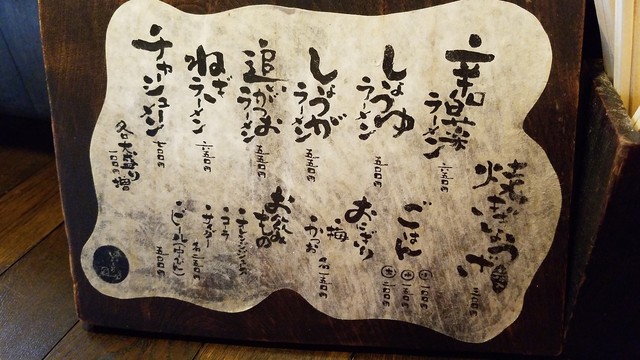 辛味
ラーメン
六五〇円
しょうゆ
ラーメン
五五〇円
しょうが
ラーメン
五五〇円
追いがつお
ラーメン
五五〇円
ねぎ
ラーメン
六五〇円
チャーシューメン
各大盛り
一〇〇円増
焼きぎょうざ
ごはん
小 一〇〇円
中 一五〇円
大 二〇〇円
おにぎり
梅
かつお
各一五〇円
お飲みもの
オレンジジュース
コーラ
サイダー
各二五〇円
ビール(中びん)
五〇〇円